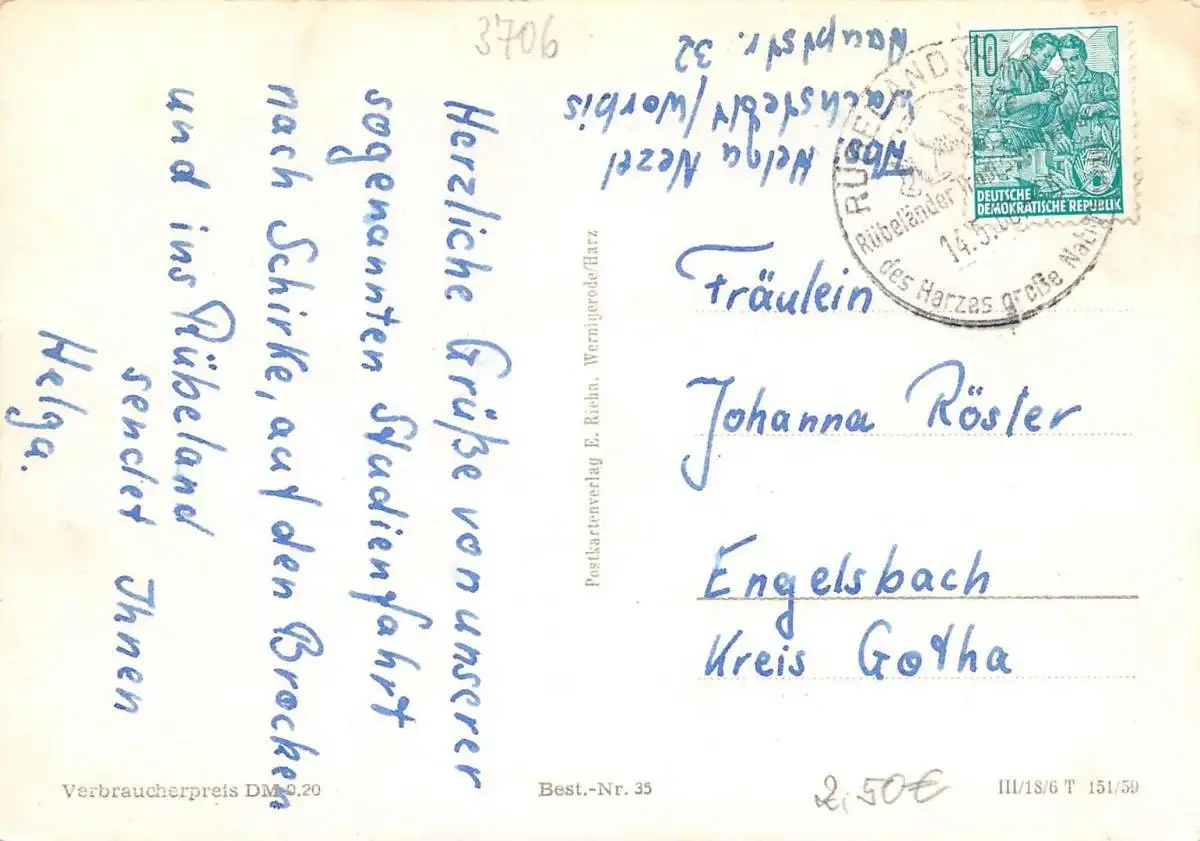 3706
Abs. Helga Nezel
Wachstedt/Worbis
Hauptstr. 32
Herzliche Grüße von unserer
sogenannten Studienfahrt
nach Schirke, auf den Brocken
und ins Rübeland
sendet Ihnen
Helga.
Postkartenverlag E. Riehn, Wernigerode/Harz
10
DEUTSCHE
DEMOKRATISCHE REPUBLIK
RÜBELAND
Rübeländer
14.5.
des Harzes große
Fräulein
Johanna Rösler
Engelsbach
Kreis Gotha
Verbraucherpreis DM 0.20
Best.-Nr. 35
2,50€
III/18/6 T 151/59